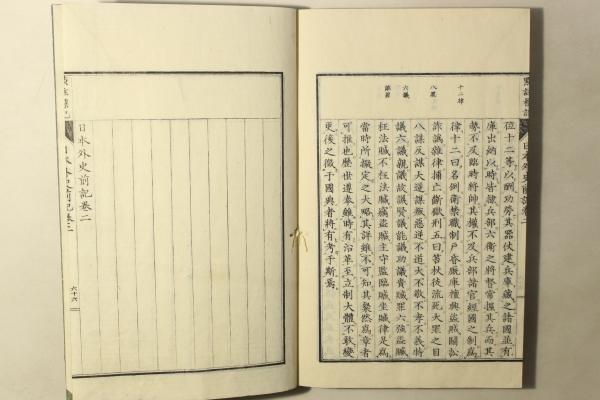 十二律
八虐
六議
位十二等以酬功勞其器仗建兵庫藏之諸國並有
庫出納以時皆隷兵部六衛之將督常握其兵而其
勢不及臨時將帥其權不及兵部諸官經國之制爲
律十二曰名例衞禁職制戶婚厩庫擅興盜賊鬪訟
詐僞雜律捕亡斷獄刑五曰笞杖徒流死大罪之目
八謀反謀大逆謀叛惡逆不道大不敬不孝不義特
議六議親議故議賢議能議功議貴贓罪六強盜贓
枉法贓不枉法贓竊盜贓主守監臨贓坐贓律是爲
當時所擬定之大略其詳雖不可知其粲然爲章者
可推也歷世遵奉雖時有沿革至立制大體不敢變
更後之徵于國典者將有考于斯焉
日本外史前記卷二
日本外史前記卷二
六十六